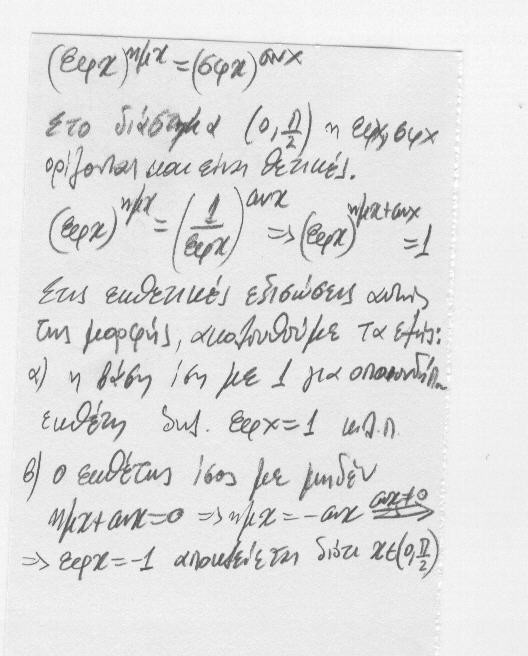 (εφx)^ημx = (σφx)^συνx
Στο διάστημα (0, π/2) η εφx, σφx
ορίζονται και είναι θετικές.
(εφx)^ημx = (1/εφx)^συνx => (εφx)^ημx+συνx = 1
Στις εκθετικές εξισώσεις αυτής
της μορφής, ακολουθούμε τα εξής:
α) η βάση ίση με 1 για οποιονδήπ.
εκθέτη δηλ. εφx = 1 κ.λ.π.
β) ο εκθέτης ίσος με μηδέν
ημx + συνx = 0 => ημx = -συνx συνx≠0 =>
=> εφx = -1 αποκλείεται διότι x∈(0, π/2)